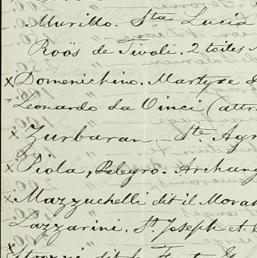 Murillo. Sta Lucia
Roös de Tivoli. 2 toiles
x Domenichino. Martyre
Leonardo da Vinci (attr
x Zurbaran. – Ste Agn
x Piola, Pelegro. Archang
x Mazzuchelli dit il Moraz
Lazzarini. St Joseph et
x Strozzi dit